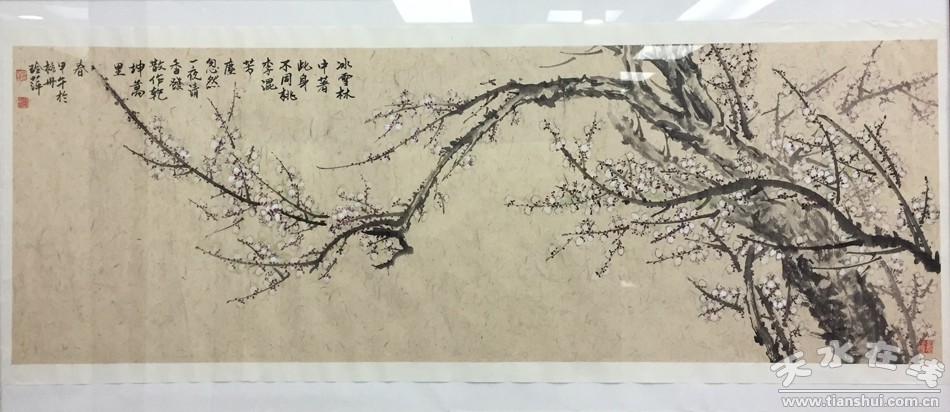 冰雪林
中著
此身
不同桃
李混
芳
塵
忽然
一夜清
香發
散作乾
坤萬
里
春
甲午於
天水在线
www.tianshui.com.cn